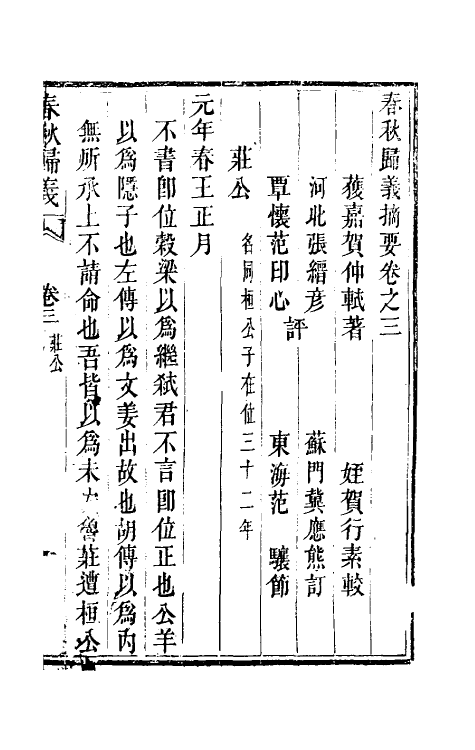 春秋歸義摘要卷之三
獲嘉賀仲軾著　姪賀行素較
河北張縉彥　蘇門冀應熊訂
覃懷范印心評　東海范　驤節
莊公　名同桓公子在位三十二年
元年春王正月
不書卽位穀梁以爲繼弑君不言卽位正也公羊
以爲隱子也左傳以爲文姜出故也胡傳以爲內
無所承上不請命也吾皆以爲未　魯莊遭桓公
春秋歸義　卷三　莊公　一